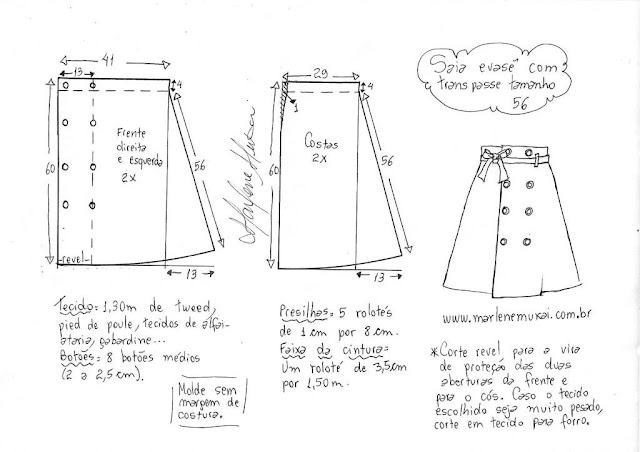 41
13
4
Frente
direita
e esquerda
2x
60
56
revel
13
Marlene Mukai
29
4
1
Costas
2x
60
56
13
Saia evasê com
transpasse tamanho
56
www.marlenemukai.com.br
Tecido: 1,30m de tweed,
pied de poule, tecidos de alfai-
ataria, gabardine...
Botões: 8 botões médios
(2 a 2,5cm).
Molde sem
margem de
costura.
Presilhas: 5 rolotés
de 1cm por 8cm.
Faixa da cintura:
Um roloté de 3,5cm
por 1,50m.
*Corte revel para a vira
de proteção das duas
aberturas da frente e
para o cós. Caso o tecido
escolhido seja muito pesado,
corte em tecido para forro.